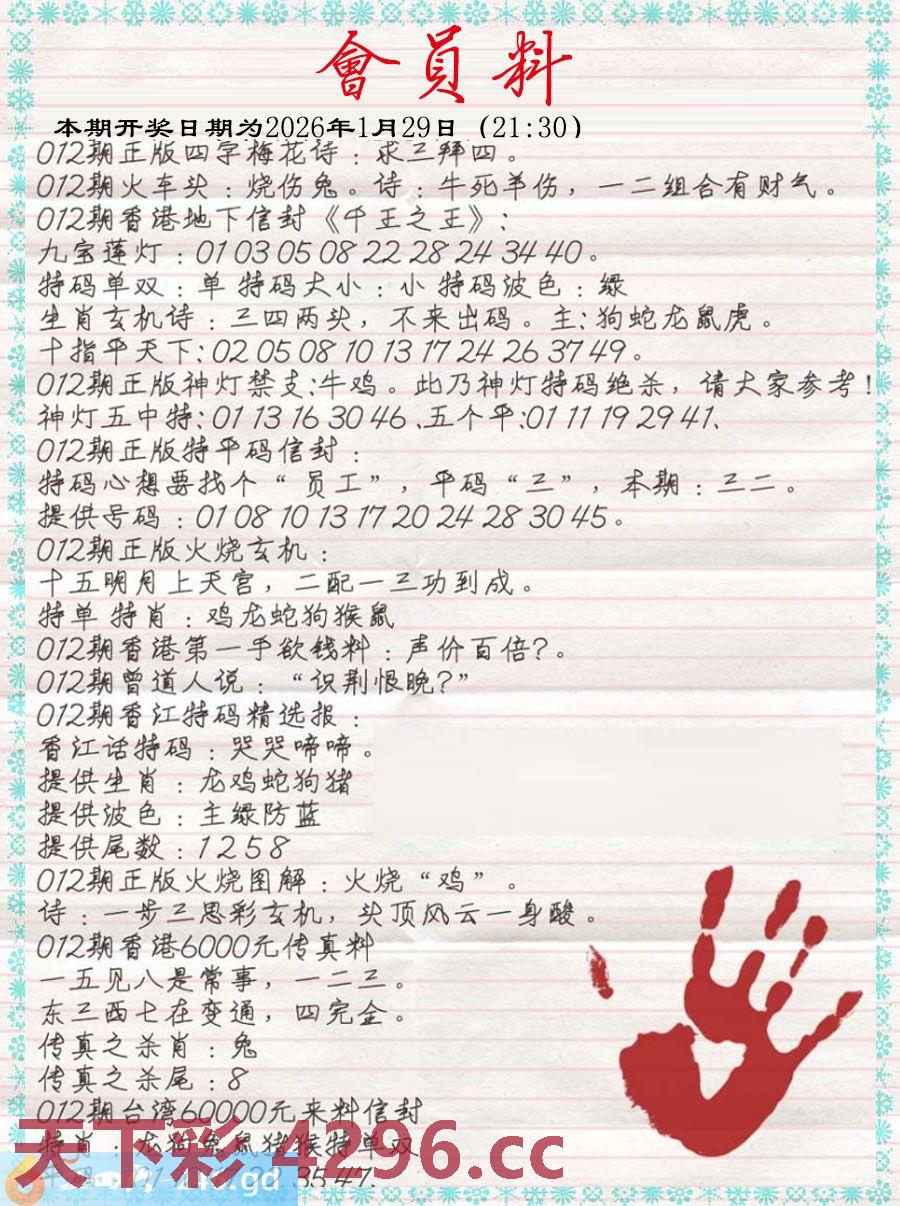 會員料
本期开奖日期为2026年1月29日（21:30）
012期正版四字梅花诗：求三拜四。
012期火车头：烧伤兔。诗：牛死羊伤，一二组合有财气。
012期香港地下信封《千王之王》：
九宝莲灯：01 03 05 08 22 28 24 34 40。
特码单双：单 特码大小：小 特码波色：绿
生肖玄机诗：三四两头，不来出码。主：狗蛇龙鼠虎。
十指平天下：02 05 08 10 13 17 24 26 37 49。
012期正版神灯禁支：牛鸡。此乃神灯特码绝杀，请大家参考！
神灯五中特：01 13 16 30 46、五个平：01 11 19 29 41、
012期正版特平码信封：
特码心想要找个“员工”，平码“三”，本期：三二。
提供号码：01 08 10 13 17 20 24 28 30 45。
012期正版火烧玄机：
十五明月上天宫，二配一三功到成。
特单 特肖：鸡龙蛇狗猴鼠
012期香港第一手欲钱料：声价百倍？。
012期曾道人说：“识荆恨晚？”
012期香江特码精选报：
香江话特码：哭哭啼啼。
提供生肖：龙鸡蛇狗猪
提供波色：主绿防蓝
提供尾数：1 2 5 8
012期正版火烧图解：火烧“鸡”。
诗：一步三思彩玄机，头顶风云一身酸。
012期香港6000元传真料
一五见八是常事，一二三。
东三西七在变通，四完全。
传真之杀肖：兔
传真之杀尾：8
012期台湾60000元来料信封
特肖：龙狗兔鼠猪猴特单双
天下彩 4296.cc
35 41、